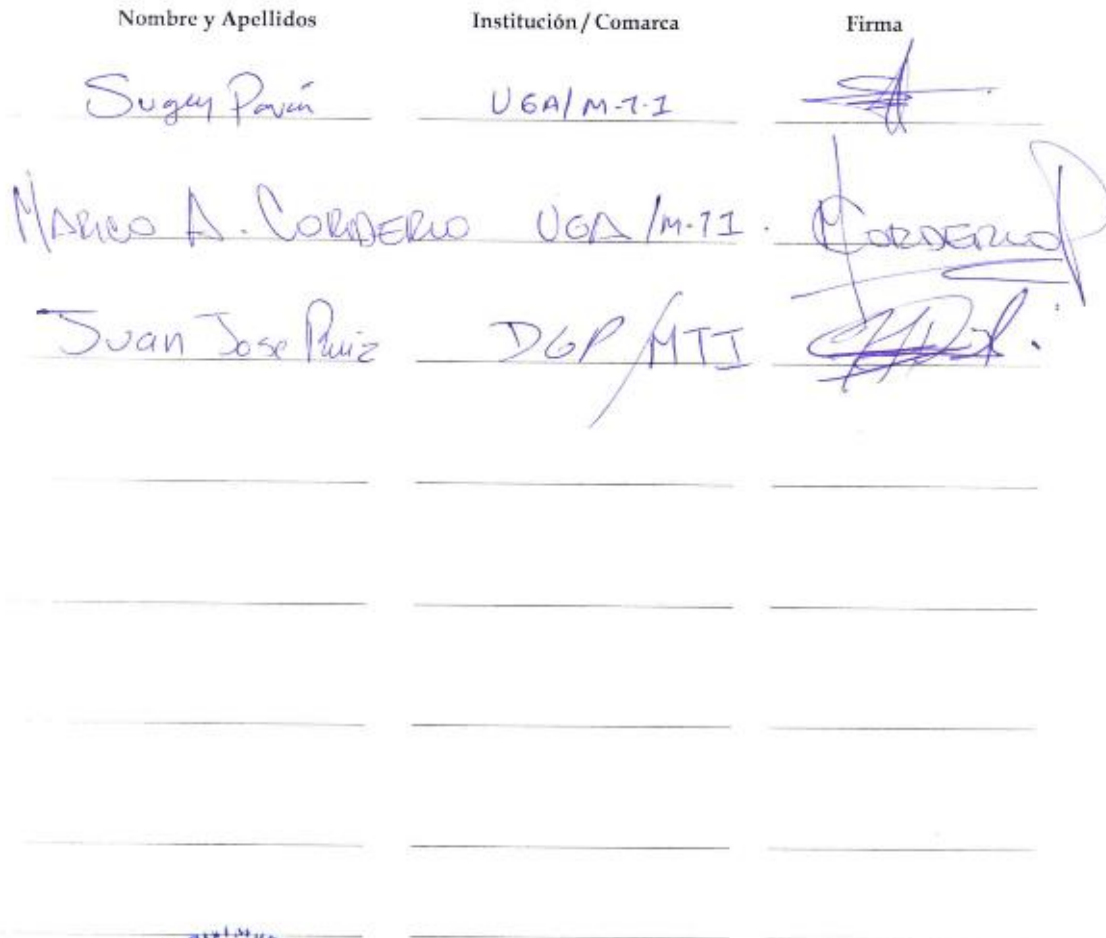 Nombre y Apellidos Institución / Comarca Firma
Sugey Pavón UGA/M.T.I
MARCO A. CORDERO UGA/M.T.I. CORDERO
Juan Jose Ruiz DGP/MTI